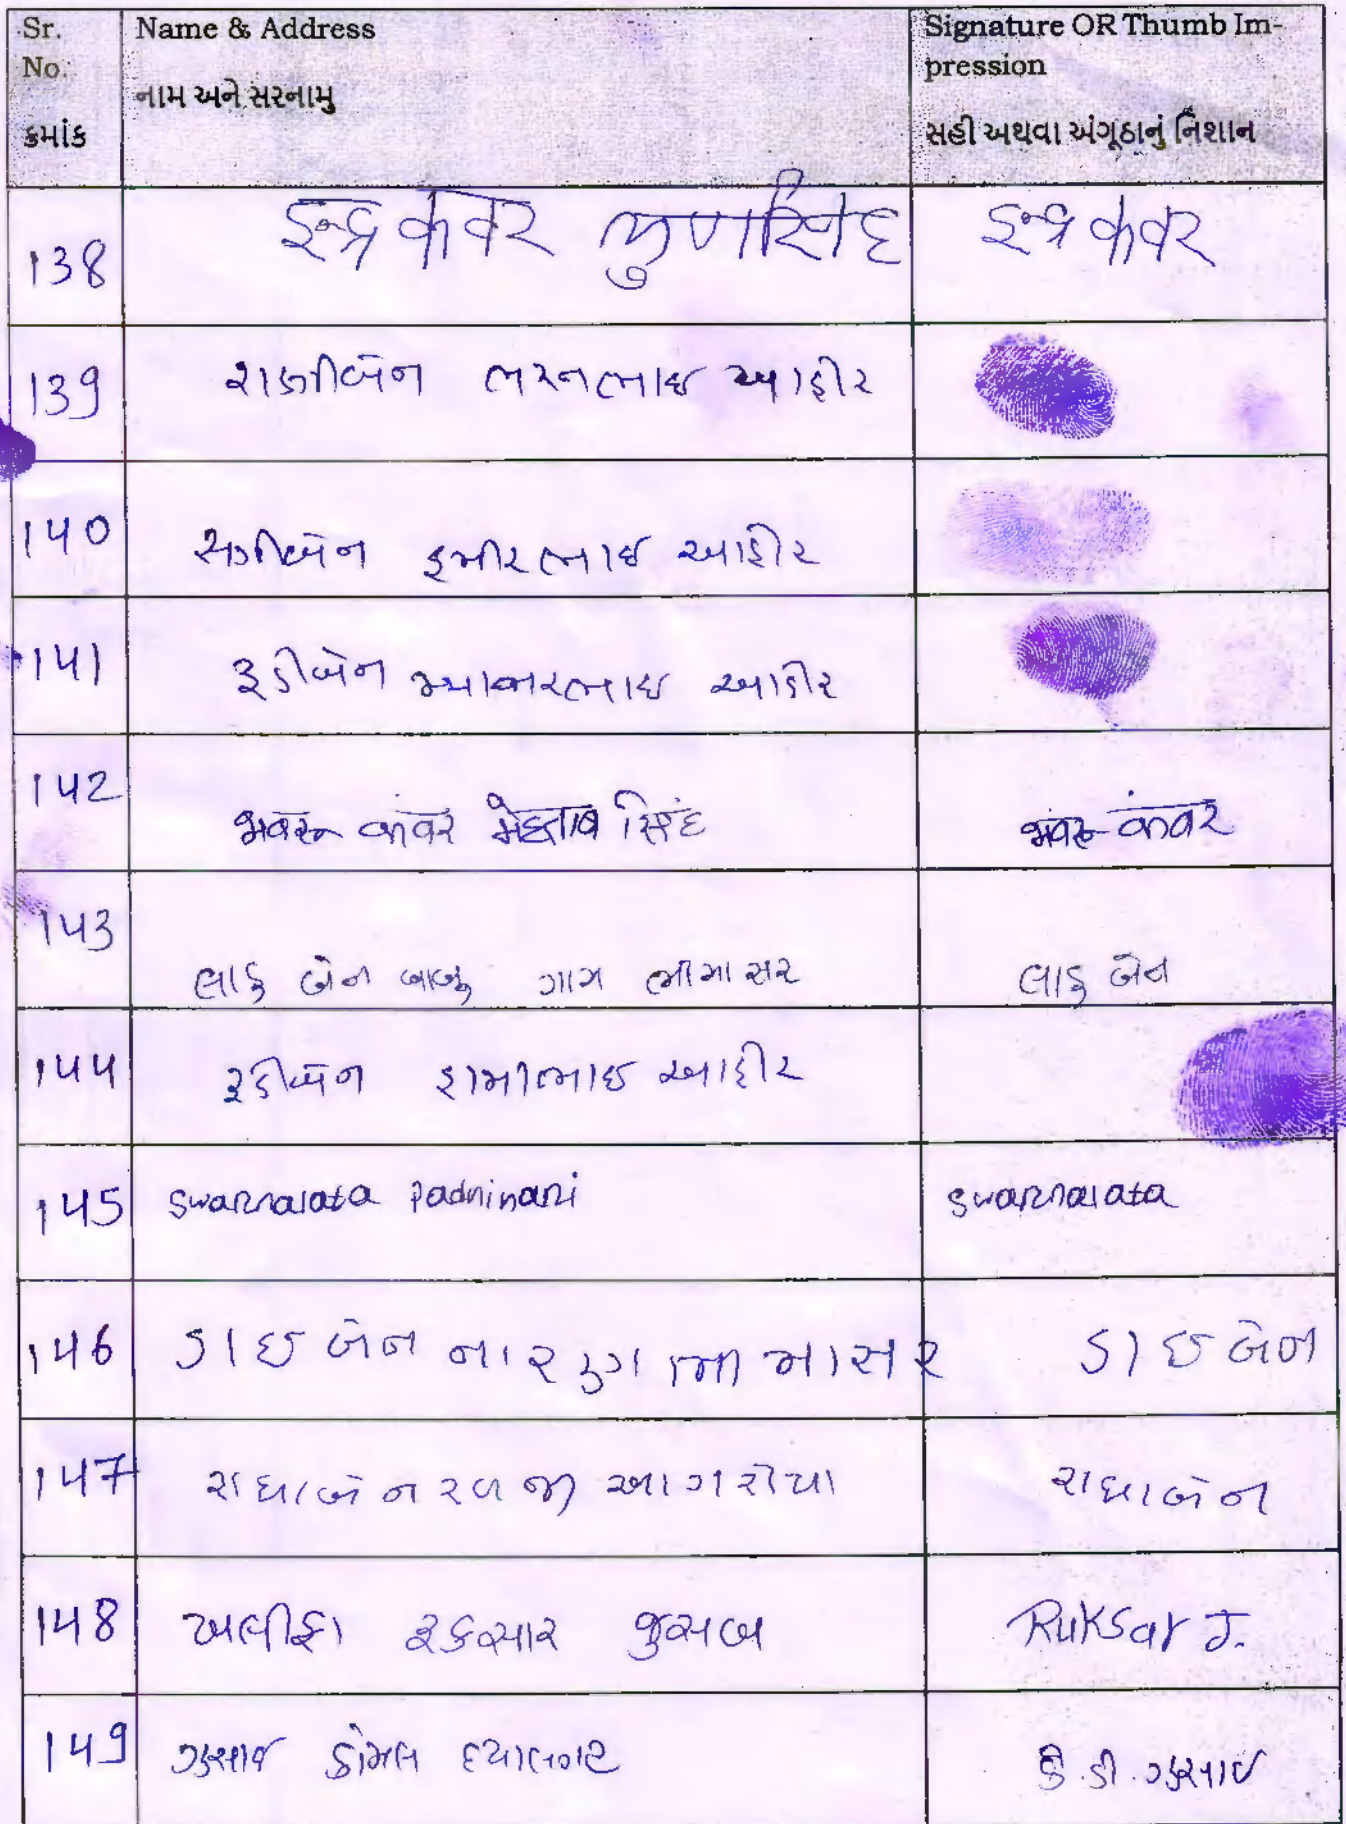 Sr. No. ક્રમાંક Name & Address નામ અને સરનામુ Signature OR Thumb Im-
pression સહી અથવા અંગૂઠાનું નિશાન
138 इन्द्र कवर लुणसिंह इन्द्र कवर
139 રાજીબેન ભરતભાઇ આહીર
140 સજીબેન હમીરભાઇ આહીર
141 રૂડીબેન આહીર
142 भवरू कंवर मेहताब सिंह भवरू कंवर
143 લાડુ બેન બાબુ ગાગ ભીમાસર લાડુ બેન
144 રૂડીબેન રામાભાઇ આહીર
145 Swarnalata Padninani Swarnalata
146 ડાઇ બેન ભીમાસર ડાઇ બેન
147 રાધાબેન રવજી આગરીયા રાધાબેન
148 ખલીફા રૂકસાર જુસબ Ruksar J.
149 ગુસાઇ કોમલ દયાલગર કે.ડી.ગુસાઇ